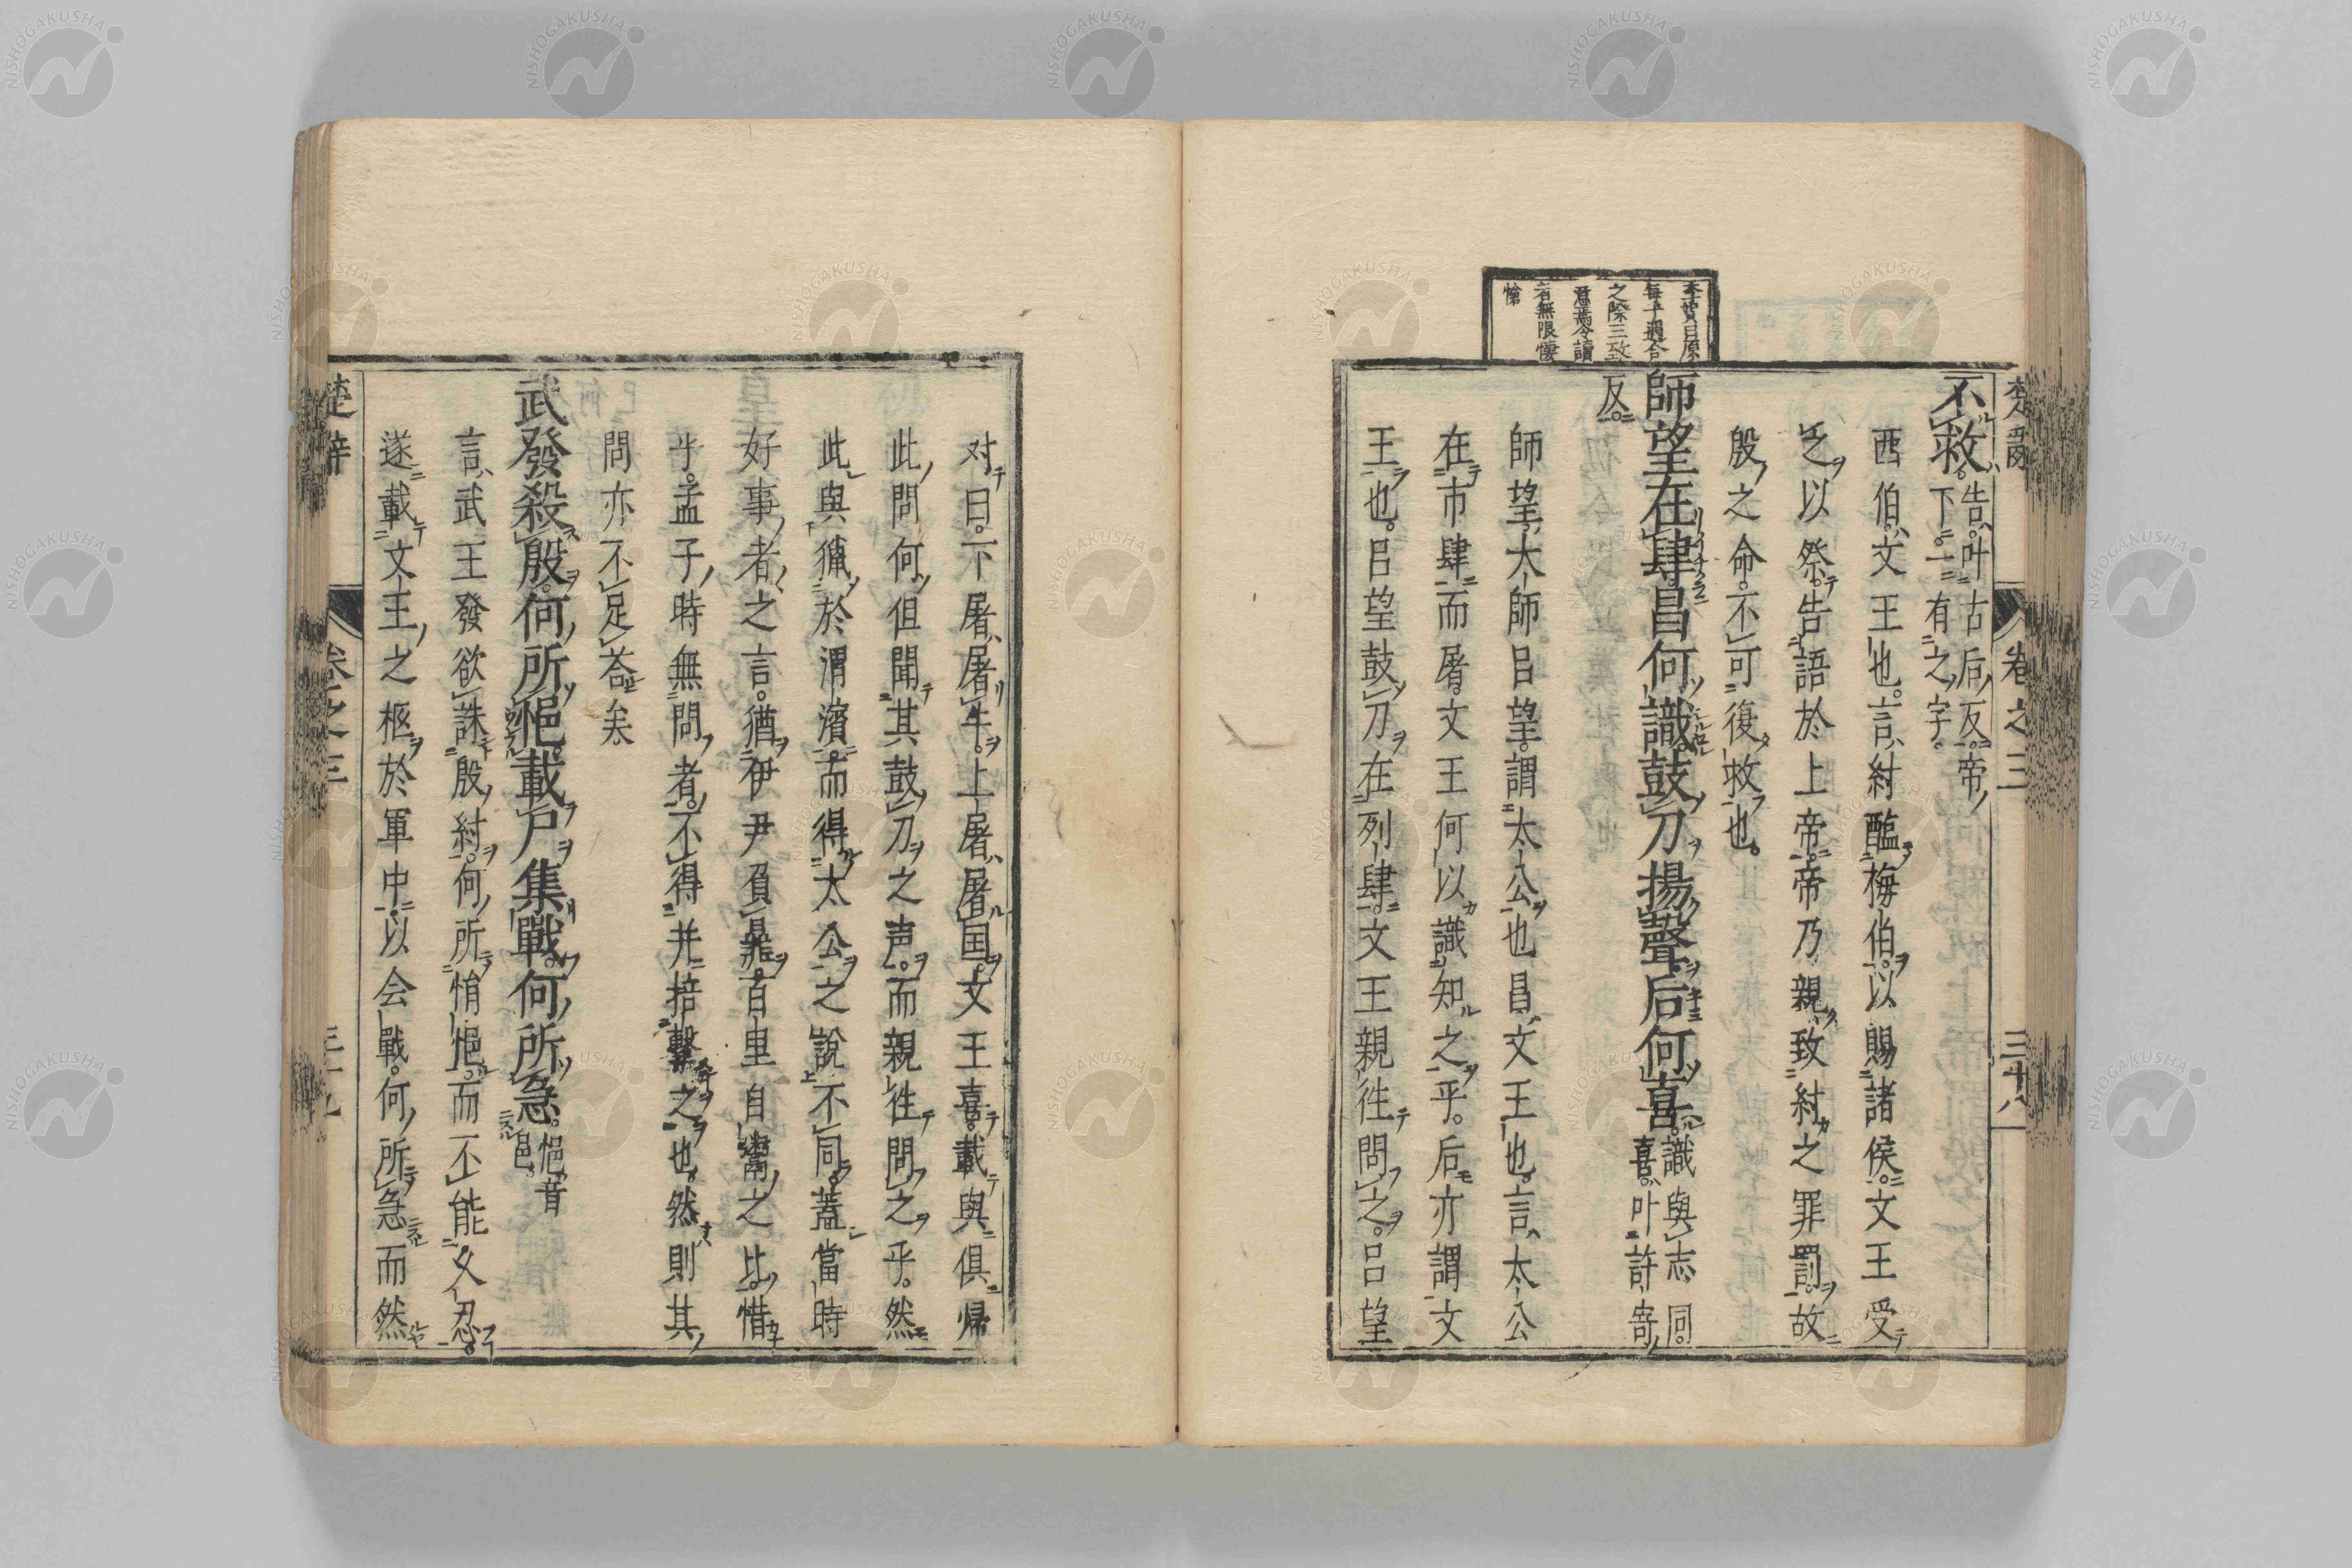 楚辭 卷之三 三十八
不救。告、叶古后反。帝、
下、一有之字。
西伯、文王也。言、紂醢梅伯。以賜諸侯。文王受
之以祭。告語於上帝。帝乃親致紂之罪罰。故
殷之命。不可復救也。
李賀曰原
每于遇合
之際三致
意焉今讀
者無限悽
愴
師望在肆昌何識。鼓刀揚聲后何喜。識與志同。
喜、叶許寄
反。
師望、太師呂望。謂太公也昌、文王也。言、太公
在市肆而屠。文王何以識知之乎。后亦謂文
王也。呂望鼓刀在列肆。文王親往問之。呂望
对曰。下屠、屠牛。上屠、屠国。文王喜。載與俱帰
此問何但聞其鼓刀之声。而親往問之乎。然
此與獵於渭濱。而得太公之說不同。蓋當時
好事者之言。猶伊尹負鼎。百里自鬻之比。惜
乎。孟子時無問者。不得并掊擊之也。然則其
問亦不足荅矣
武發殺殷。何所悒。載尸集戰。何所急。悒音
邑。
言、武王發欲誅殷紂。何所悁悒。而不能久忍。
遂載文王之柩於軍中。以会戰。何所急而然
楚辞 卷之三 三十九